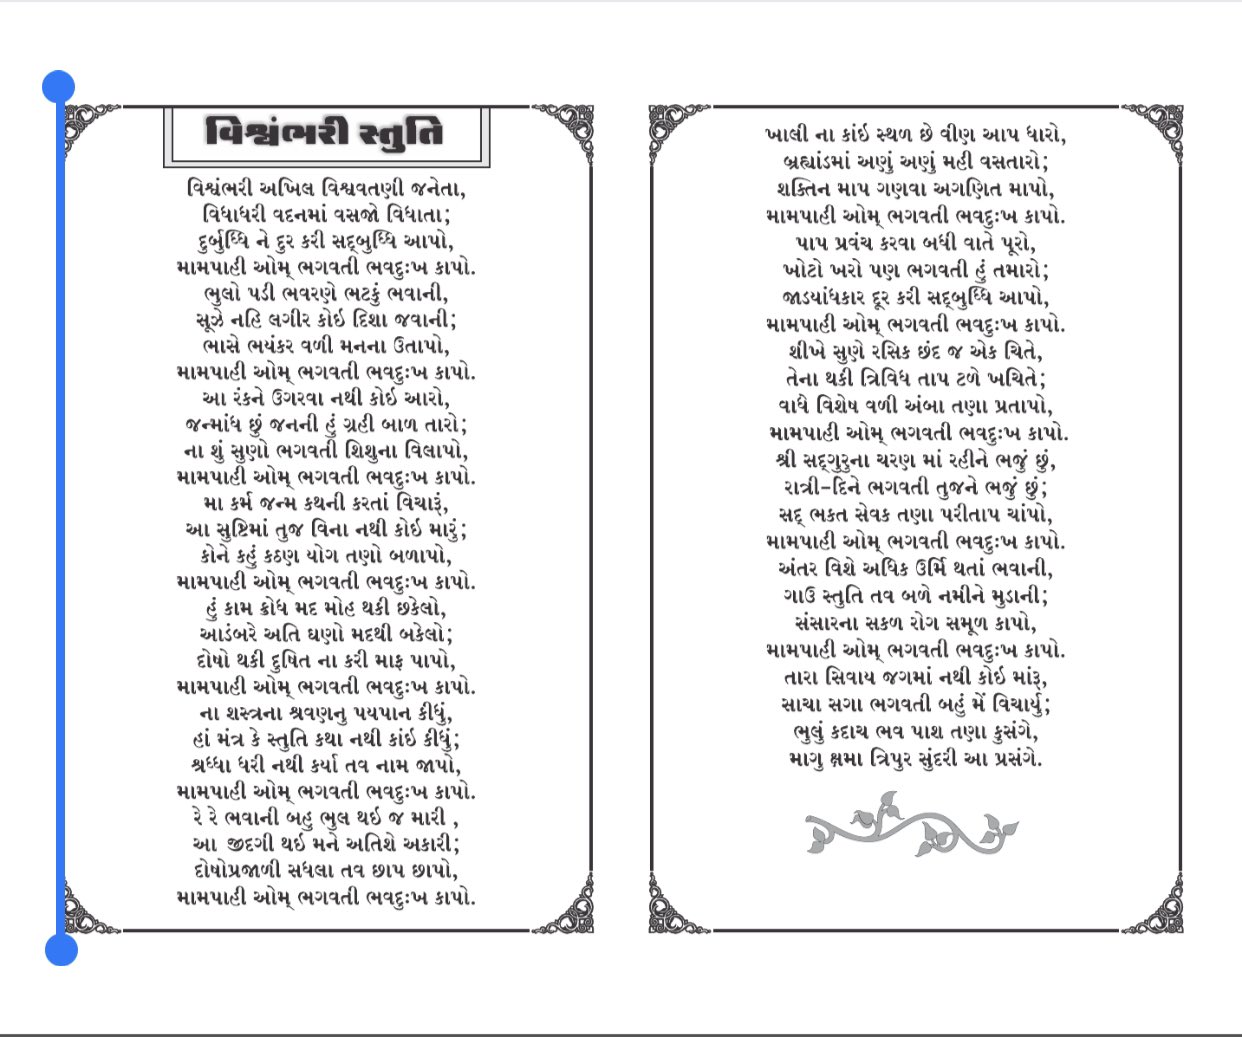 વિશ્વંભરી સ્તુતિ
વિશ્વંભરી અખિલ વિશ્વવતણી જનેતા,
વિધાધરી વદનમાં વસજો વિધાતા;
દુર્બુધ્ધિ ને દુર કરી સદ્બુધ્ધિ આપો,
મામપાહી ઓમ્ ભગવતી ભવદુઃખ કાપો.
ભુલો પડી ભવરણે ભટકું ભવાની,
સૂઝે નહિ લગીર કોઇ દિશા જવાની;
ભાસે ભયંકર વળી મનના ઉતાપો,
મામપાહી ઓમ્ ભગવતી ભવદુઃખ કાપો.
આ રંકને ઉગરવા નથી કોઇ આરો,
જન્માંધ છું જનની હું ગ્રહી બાળ તારો;
ના શું સુણો ભગવતી શિશુના વિલાપો,
મામપાહી ઓમ્ ભગવતી ભવદુઃખ કાપો.
મા કર્મ જન્મ કથની કરતાં વિચારૂં,
આ સુષ્ટિમાં તુજ વિના નથી કોઇ મારું;
કોને કહું કઠણ યોગ તણો બળાપો,
મામપાહી ઓમ્ ભગવતી ભવદુઃખ કાપો.
હું કામ ક્રોધ મદ મોહ થકી છકેલો,
આડંબરે અતિ ઘણો મદથી બકેલો;
દોષો થકી દુષિત ના કરી માફ પાપો,
મામપાહી ઓમ્ ભગવતી ભવદુઃખ કાપો.
ના શસ્ત્રના શ્રવણનુ પયપાન કીધું,
હાં મંત્ર કે સ્તુતિ કથા નથી કાંઇ કીધું;
શ્રધ્ધા ધરી નથી કર્યા તવ નામ જાપો,
મામપાહી ઓમ્ ભગવતી ભવદુઃખ કાપો.
રે રે ભવાની બહુ ભુલ થઇ જ મારી ,
આ જીદગી થઇ મને અતિશે અકારી;
દોષોપ્રજાળી સધલા તવ છાપ છાપો,
મામપાહી ઓમ્ ભગવતી ભવદુઃખ કાપો.
ખાલી ના કાંઇ સ્થળ છે વીણ આપ ધારો,
બ્રહ્માંડમાં અણું અણું મહી વસતારો;
શક્તિન માપ ગણવા અગણિત માપો,
મામપાહી ઓમ્ ભગવતી ભવદુઃખ કાપો.
પાપ પ્રવંચ કરવા બધી વાતે પૂરો,
ખોટો ખરો પણ ભગવતી હું તમારો;
જાડયાંધકાર દૂર કરી સદ્બુધ્ધિ આપો,
મામપાહી ઓમ્ ભગવતી ભવદુઃખ કાપો.
શીખે સુણે રસિક છંદ જ એક ચિતે,
તેના થકી ત્રિવિધ તાપ ટળે ખચિતે;
વાધે વિશેષ વળી અંબા તણા પ્રતાપો,
મામપાહી ઓમ્ ભગવતી ભવદુઃખ કાપો.
શ્રી સદ્ગુરુના ચરણ માં રહીને ભજું છું,
રાત્રી-દિને ભગવતી તુજને ભજું છું;
સદ્ ભકત સેવક તણા પરીતાપ ચાંપો,
મામપાહી ઓમ્ ભગવતી ભવદુઃખ કાપો.
અંતર વિશે અધિક ઉર્મિ થતાં ભવાની,
ગાઉ સ્તુતિ તવ બળે નમીને મુડાની;
સંસારના સકળ રોગ સમૂળ કાપો,
મામપાહી ઓમ્ ભગવતી ભવદુઃખ કાપો.
તારા સિવાય જગમાં નથી કોઇ માંરૂ,
સાચા સગા ભગવતી બહું મેં વિચાર્યુ;
ભુલું કદાચ ભવ પાશ તણા કુસંગે,
માગુ ક્ષમા ત્રિપુર સુંદરી આ પ્રસંગે.